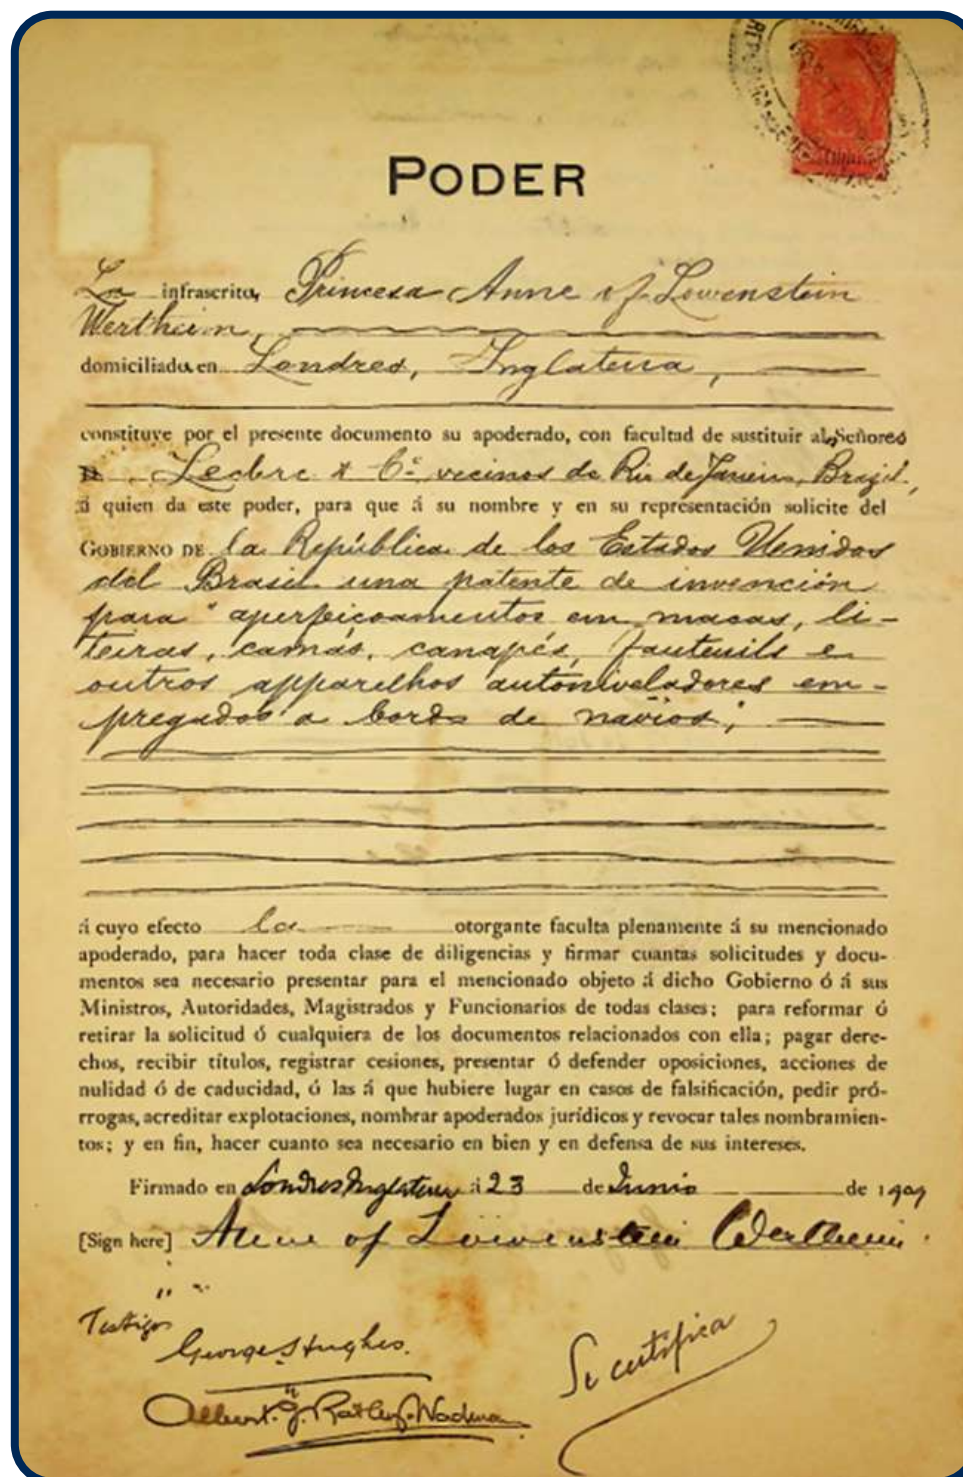 PODER
La infrascrita, Princesa Anne of Lowenstein
Wertheim,
domiciliada en Londres, Inglaterra,
constituye por el presente documento su apoderado, con facultad de sustituir al Señores
Leclerc & Cº vecinos de Rio de Janeiro, Brazil,
á quien da este poder, para que á su nombre y en su representación solicite del
GOBIERNO DE la República de los Estados Unidos
del Brasil una patente de invención
para "aperfeicoamentos em macas, li-
teiras, camás, canapés, fauteuils e
outros apparelhos autoniveladores em-
pregados a bordo de navios,"
á cuyo efecto la otorgante faculta plenamente á su mencionado
apoderado, para hacer toda clase de diligencias y firmar cuantas solicitudes y docu-
mentos sea necesario presentar para el mencionado objeto á dicho Gobierno ó á sus
Ministros, Autoridades, Magistrados y Funcionarios de todas clases; para reformar ó
retirar la solicitud ó cualquiera de los documentos relacionados con ella; pagar dere-
chos, recibir títulos, registrar cesiones, presentar ó defender oposiciones, acciones de
nulidad ó de caducidad, ó las á que hubiere lugar en casos de falsificación, pedir pró-
rrogas, acreditar explotaciones, nombrar apoderados jurídicos y revocar tales nombramien-
tos; y en fin, hacer cuanto sea necesario en bien y en defensa de sus intereses.
Firmado en Londres Inglaterra á 23 de Junio de 1909
[Sign here] Anne of Löwenstein Wertheim.
Testigos
George Hughes.
Albert. J.
Se certifica